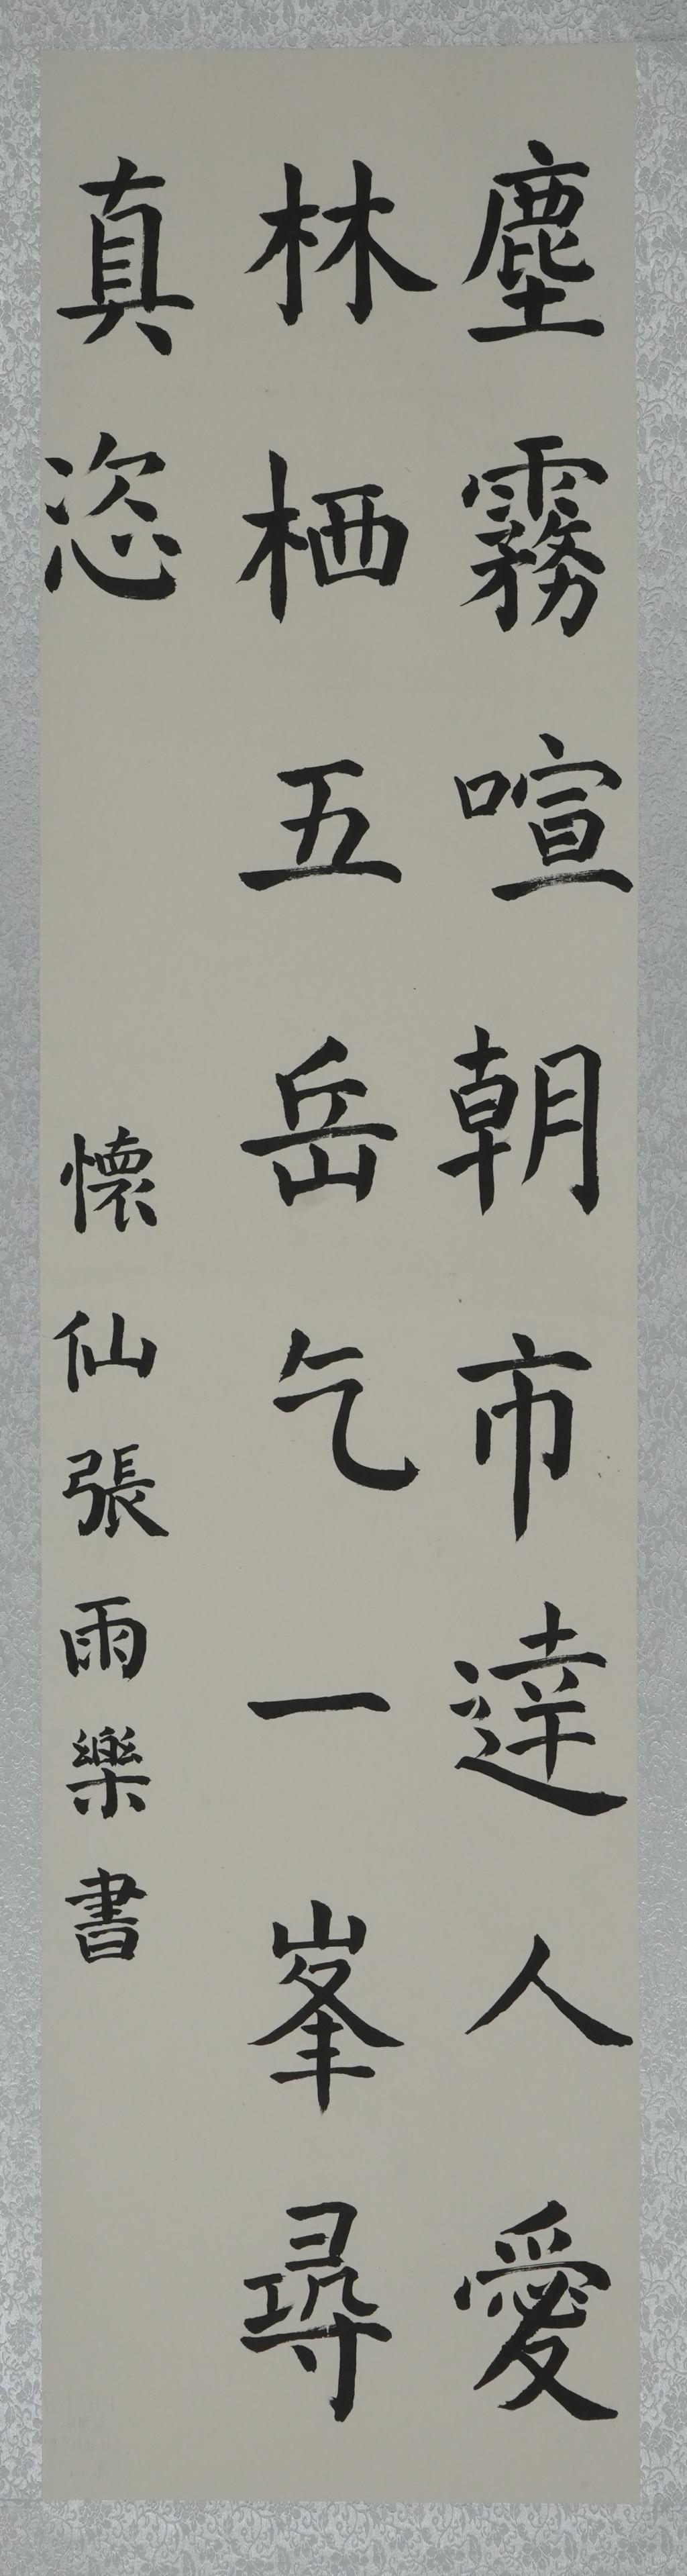 塵霧喧朝市達人愛
林栖五岳乞一峯尋
真恣
懷仙張雨樂書